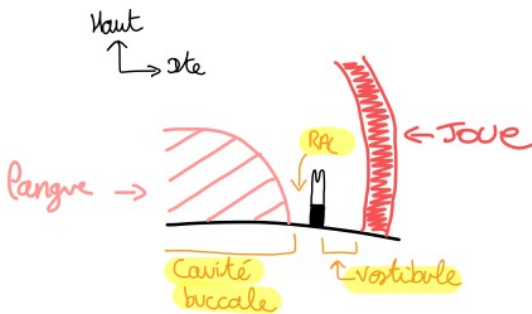 Haut
Dte
RAC
← Joue
Langue →
Cavité
buccale
vestibule